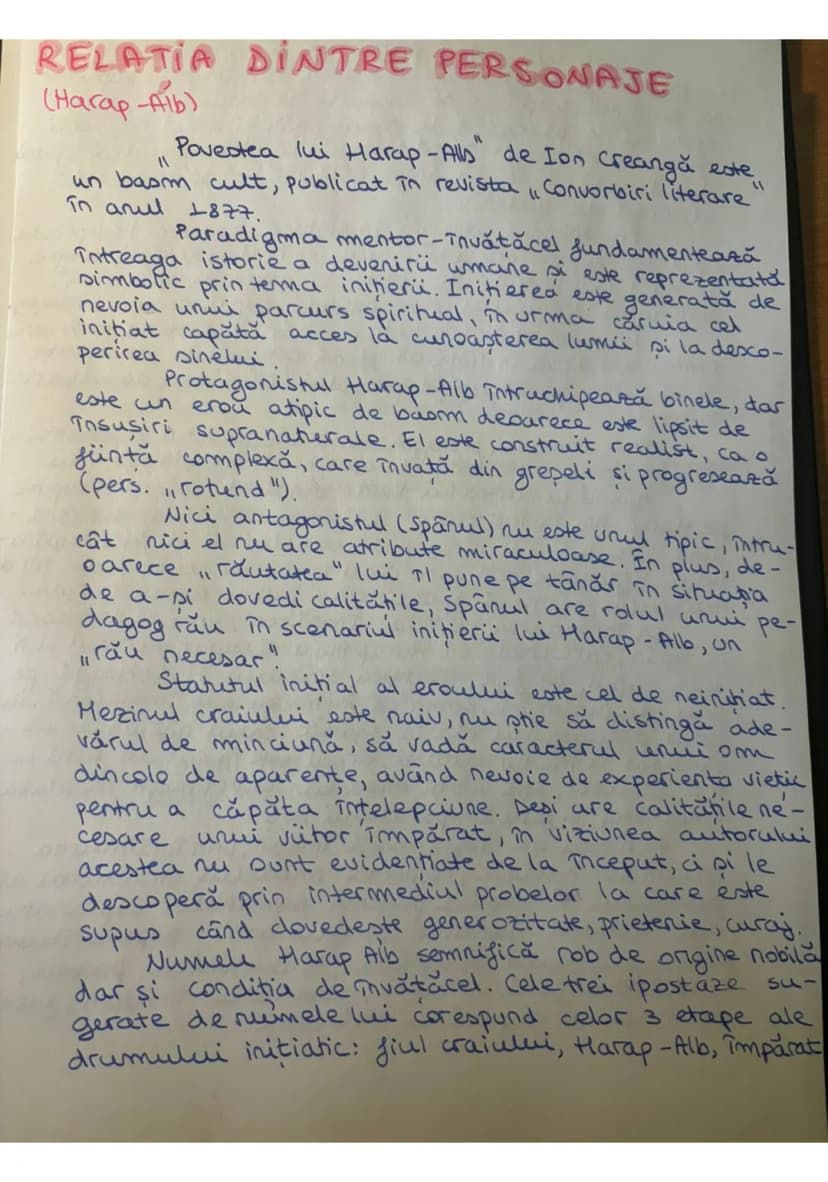 RELAȚIA DINTRE PERSONAJE
(Harap-Alb)
„Povestea lui Harap-Alb" de Ion Creangă este
un basm cult, publicat în revista „Convorbiri literare"
în anul 1877.
Paradigma mentor-învățăcel fundamentează
întreaga istorie a devenirii umane și este reprezentată
simbolic prin tema inițierii. Inițierea este generată de
nevoia unui parcurs spiritual, în urma căruia cel
inițiat capătă acces la cunoașterea lumii și la desco-
perirea sinelui.
Protagonistul Harap-Alb întruchipează binele, dar
este un erou atipic de basm deoarece este lipsit de
însușiri supranaturale. El este construit realist, ca o
ființă complexă, care învață din greșeli și progresează
(pers. „rotund").
Nici antagonistul (Spânul) nu este unul tipic, întru-
cât nici el nu are atribute miraculoase. În plus, de-
oarece „răutatea" lui îl pune pe tânăr în situația
de a-și dovedi calitățile, Spânul are rolul unui pe-
dagog rău în scenariul inițierii lui Harap-Alb, un
„rău necesar".
Statutul inițial al eroului este cel de neinițiat.
Mezinul craiului este naiv, nu știe să distingă ade-
vărul de minciună, să vadă caracterul unui om
dincolo de aparențe, având nevoie de experiența vieții
pentru a căpăta înțelepciune. Deși are calitățile ne-
cesare unui viitor împărat, în viziunea autorului
acestea nu sunt evidențiate de la început, ci și le
descoperă prin intermediul probelor la care este
supus când dovedește generozitate, prietenie, curaj.
Numele Harap Alb semnifică rob de origine nobilă
dar și condiția de învățăcel. Cele trei ipostaze su-
gerate de numele lui corespund celor 3 etape ale
drumului inițiatic: fiul craiului, Harap-Alb, împărat